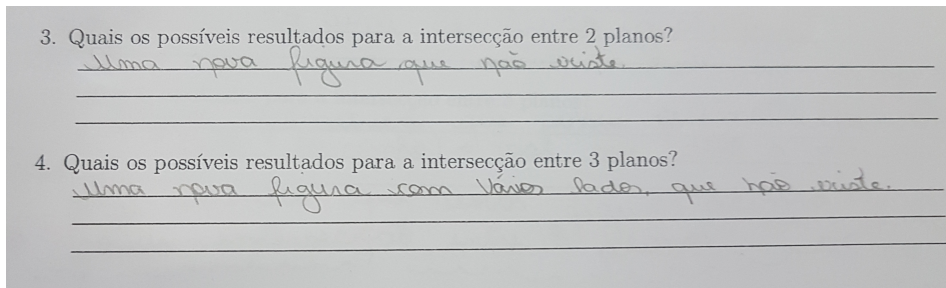 3. Quais os possíveis resultados para a intersecção entre 2 planos?
Uma nova figura que não existe.
4. Quais os possíveis resultados para a intersecção entre 3 planos?
Uma nova figura com vários lados, que não existe.